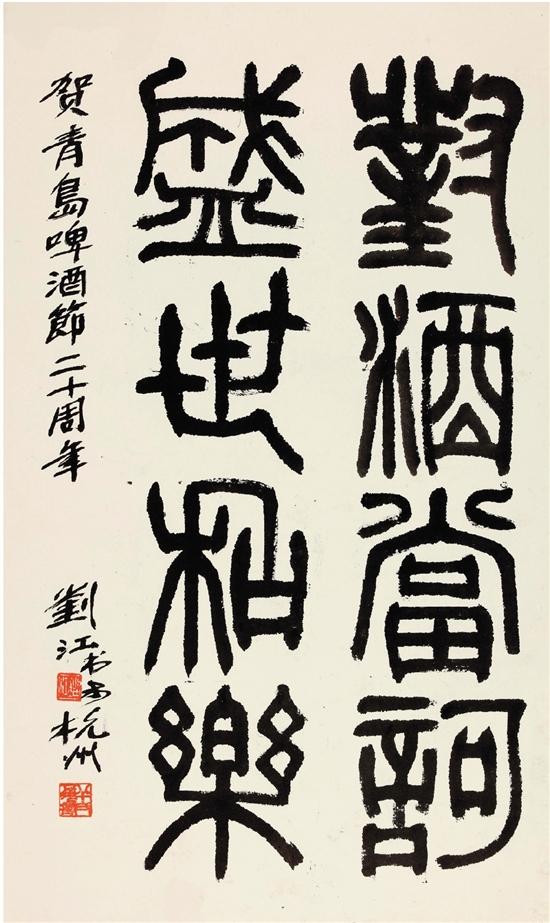 對酒當訶
盛世和樂
贺青島啤酒節二十周年
劉江书於杭州